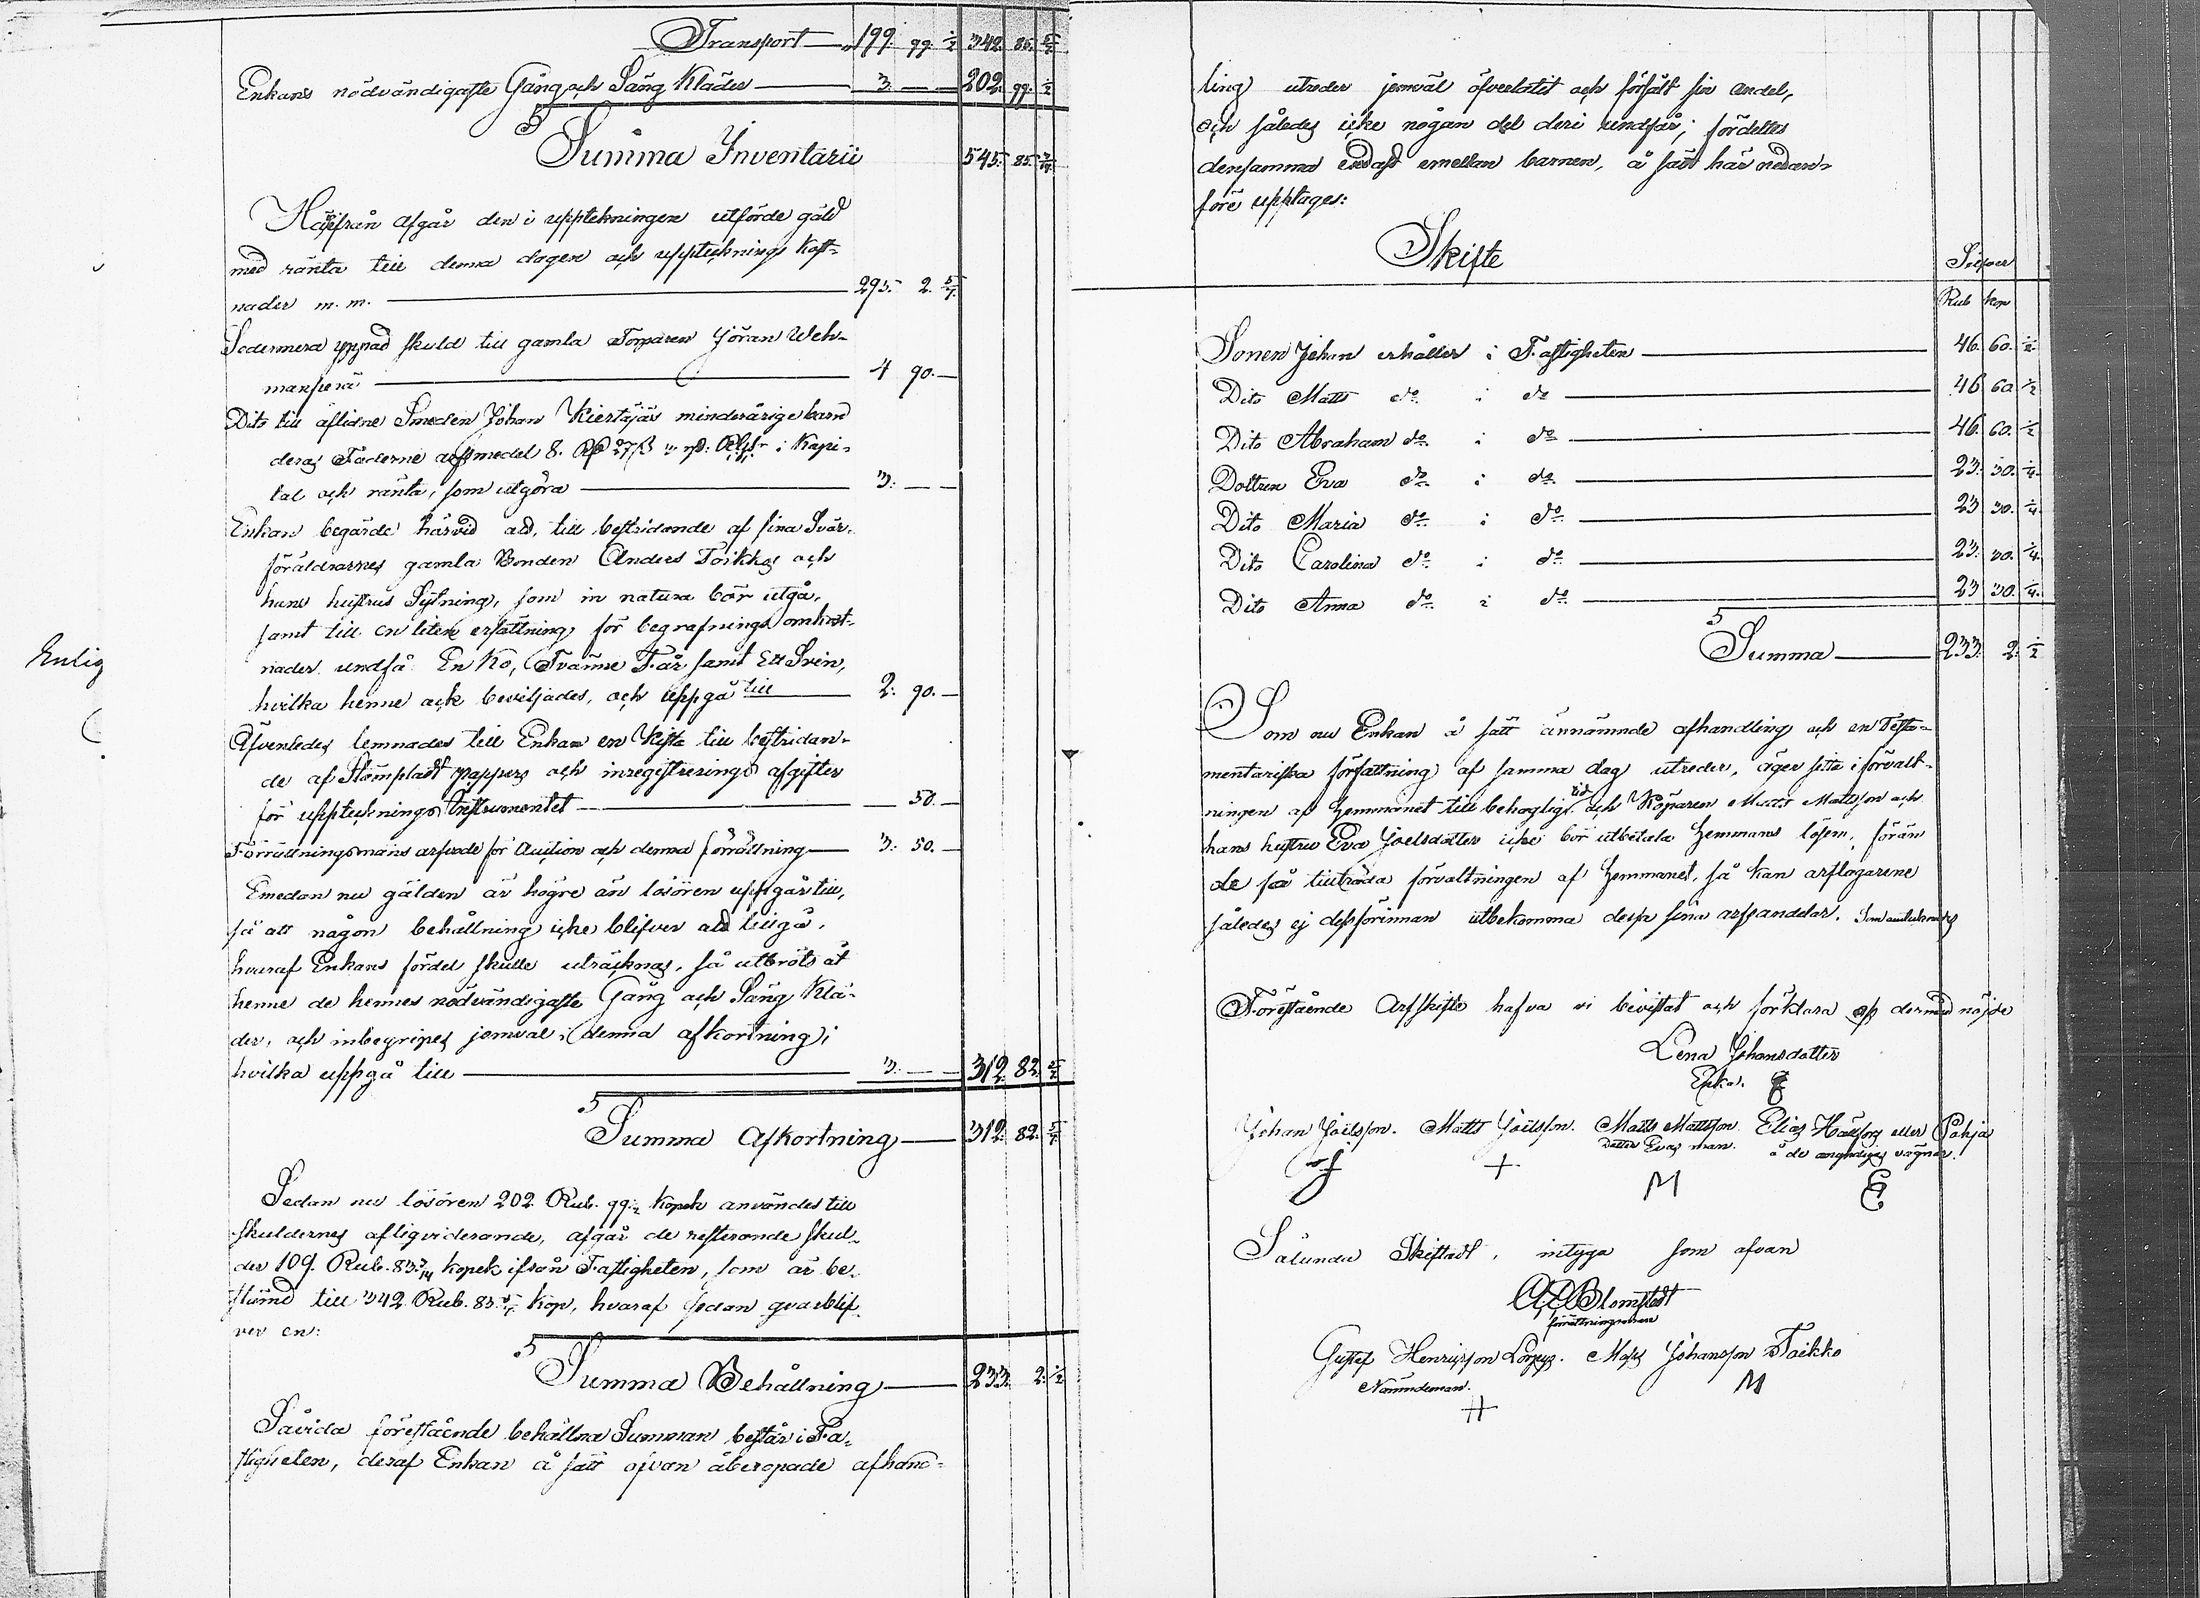 Transport — 199. 99. 1/2 342. 85. 5/7
Enkans nödvändigaste Gång och Säng Kläder — 3. — — 202. 99. 1/2
Summa Inventarii 545. 85. 3/14
Härifrån afgår den i upptekningen utförde gäld
med ränta till denna dagen och upptecknings kost-
nader m. m. — 295. 2. 5/7
Sedermera yppad skuld till gamla Torparen Jöran Weh-
manperä — 4 90. —
Dito till aflidne Smeden Johan Kiertäjäs minderårige barn
deras Fäderne arfsmedel 8. 27 i Kapi-
tal och ränta, som utgöra — 3. — —
Enkan begärde härvid att, till bestridande af sina Svär-
föräldrarnes gamla Bonden Anders Toikkas och
hans hustrus Sytning, som in natura bör utgå,
samt till en liten ersättning för begrafnings omkost-
nader undfå En Ko, Tvänne Får samt Ett Svin,
hvilka henne ock beviljades, och uppgå till — 2. 90. —
Enlig
Äfvenledes lemnades till Enkan en Kista till bestridan-
de af Stämpladt pappers och inregistrerings afgifter
för upptecknings Instrumentet — — 50. —
Förrättningsmäns arfvode för Auction och denna förrättning — 3. 50. —
Emedan nu gälden är högre än lösören uppgår till,
så att någon behållning icke blifver att tillgå,
hvaraf Enkans fördel skulle uträcknas, så utbröts åt
henne de hennes nödvändigaste Gång och Säng Klä-
der, och inbegripes jemväl i denna afkortning;
hvilka uppgå till — 3. — — 312. 82. 5/7
Summa Afkortning — 312. 82. 5/7
Sedan nu lösören 202. Rub. 99. 1/2 kopek användes till
skuldernes afliqviderande, afgår de resterande skul-
der 109. Rub. 83. 3/14 kopek ifrån Fastigheten, som är be-
stämd till 342. Rub. 85. 5/7 kop, hvaraf sedan qvarblif-
ver en:
Summa Behållning — 233. 2. 1/2
Såvida förestående behållna Summan består i Fa-
stigheten, deraf Enkan å sätt ofvan åberopade afhand-
ling utreder jemväl öfverlåtit och försålt sin andel,
och således icke någon del deri undfår; fördeltes
densamma endast emellan barnen, å sätt här nedan-
före upptages:
Skifte
Silfver
Rub kop
Sonen Johan erhåller i Fastigheten — 46. 60. 1/2
Dito Matts do i do — 46. 60. 1/2
Dito Abraham do i do — 46. 60. 1/2
Dottren Eva do i do — 23. 30. 1/4
Dito Maria do i do — 23. 30. 1/4
Dito Carolina do i do — 23. 30. 1/4
Dito Anna do i do — 23. 30. 1/4
Summa — 233. 2. 1/2
Som nu Enkan å sätt annämnde afhandling och en Testa-
mentariska författning af samma dag utreder, äger sitta i förvalt-
ningen af hemmanet till behaglig tid och Köparen Matts Mattsson och
hans hustru Eva Joelsdotter icke bör utbetala hemmans lösen, förän
de få tillträda förvaltningen af hemmanet, så kan arftagarene
således ej dessförinnan utbekomma dessa sina arfsandelar. Som antecknades
Förestående Arfskifte hafva vi bevistat och förklara oss dermed nöjde
Lena Johansdotter
Enka.
Johan Joelsson. Matts Joelsson. Matts Mattsson Elias Hälsong eller Pohja
Dotter Evas man. å de omyndiges vägnar.
+ M E
Sålunda Skiftadt, intyga som ofvan
Blomstedt
förrättningsman
Gustaf Henricsson Matts Johansson Toikko
Nämndeman. M